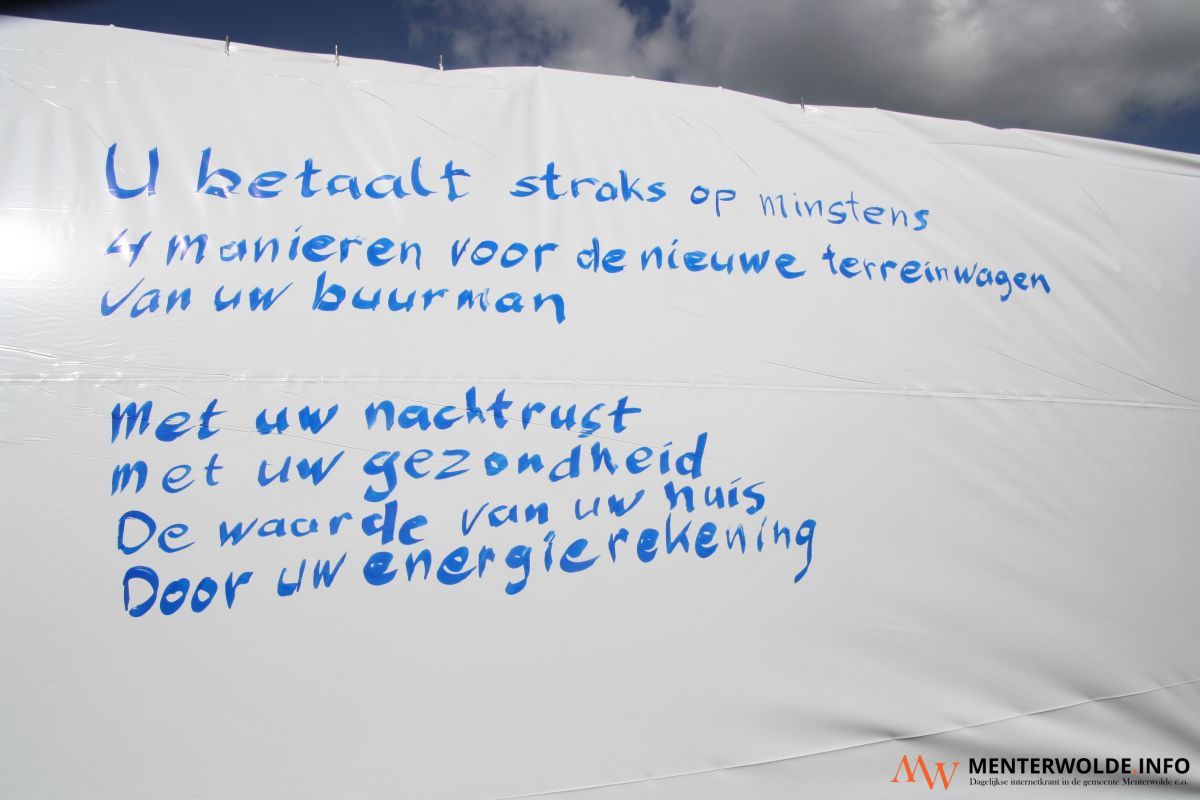 U betaalt straks op minstens
4 manieren voor de nieuwe terreinwagen
van uw buurman
Met uw nachtrust
met uw gezondheid
De waarde van uw huis
Door uw energierekening
MW MENTERWOLDE.INFO
Dagelijkse internetkrant in de gemeente Menterwolde e.o.